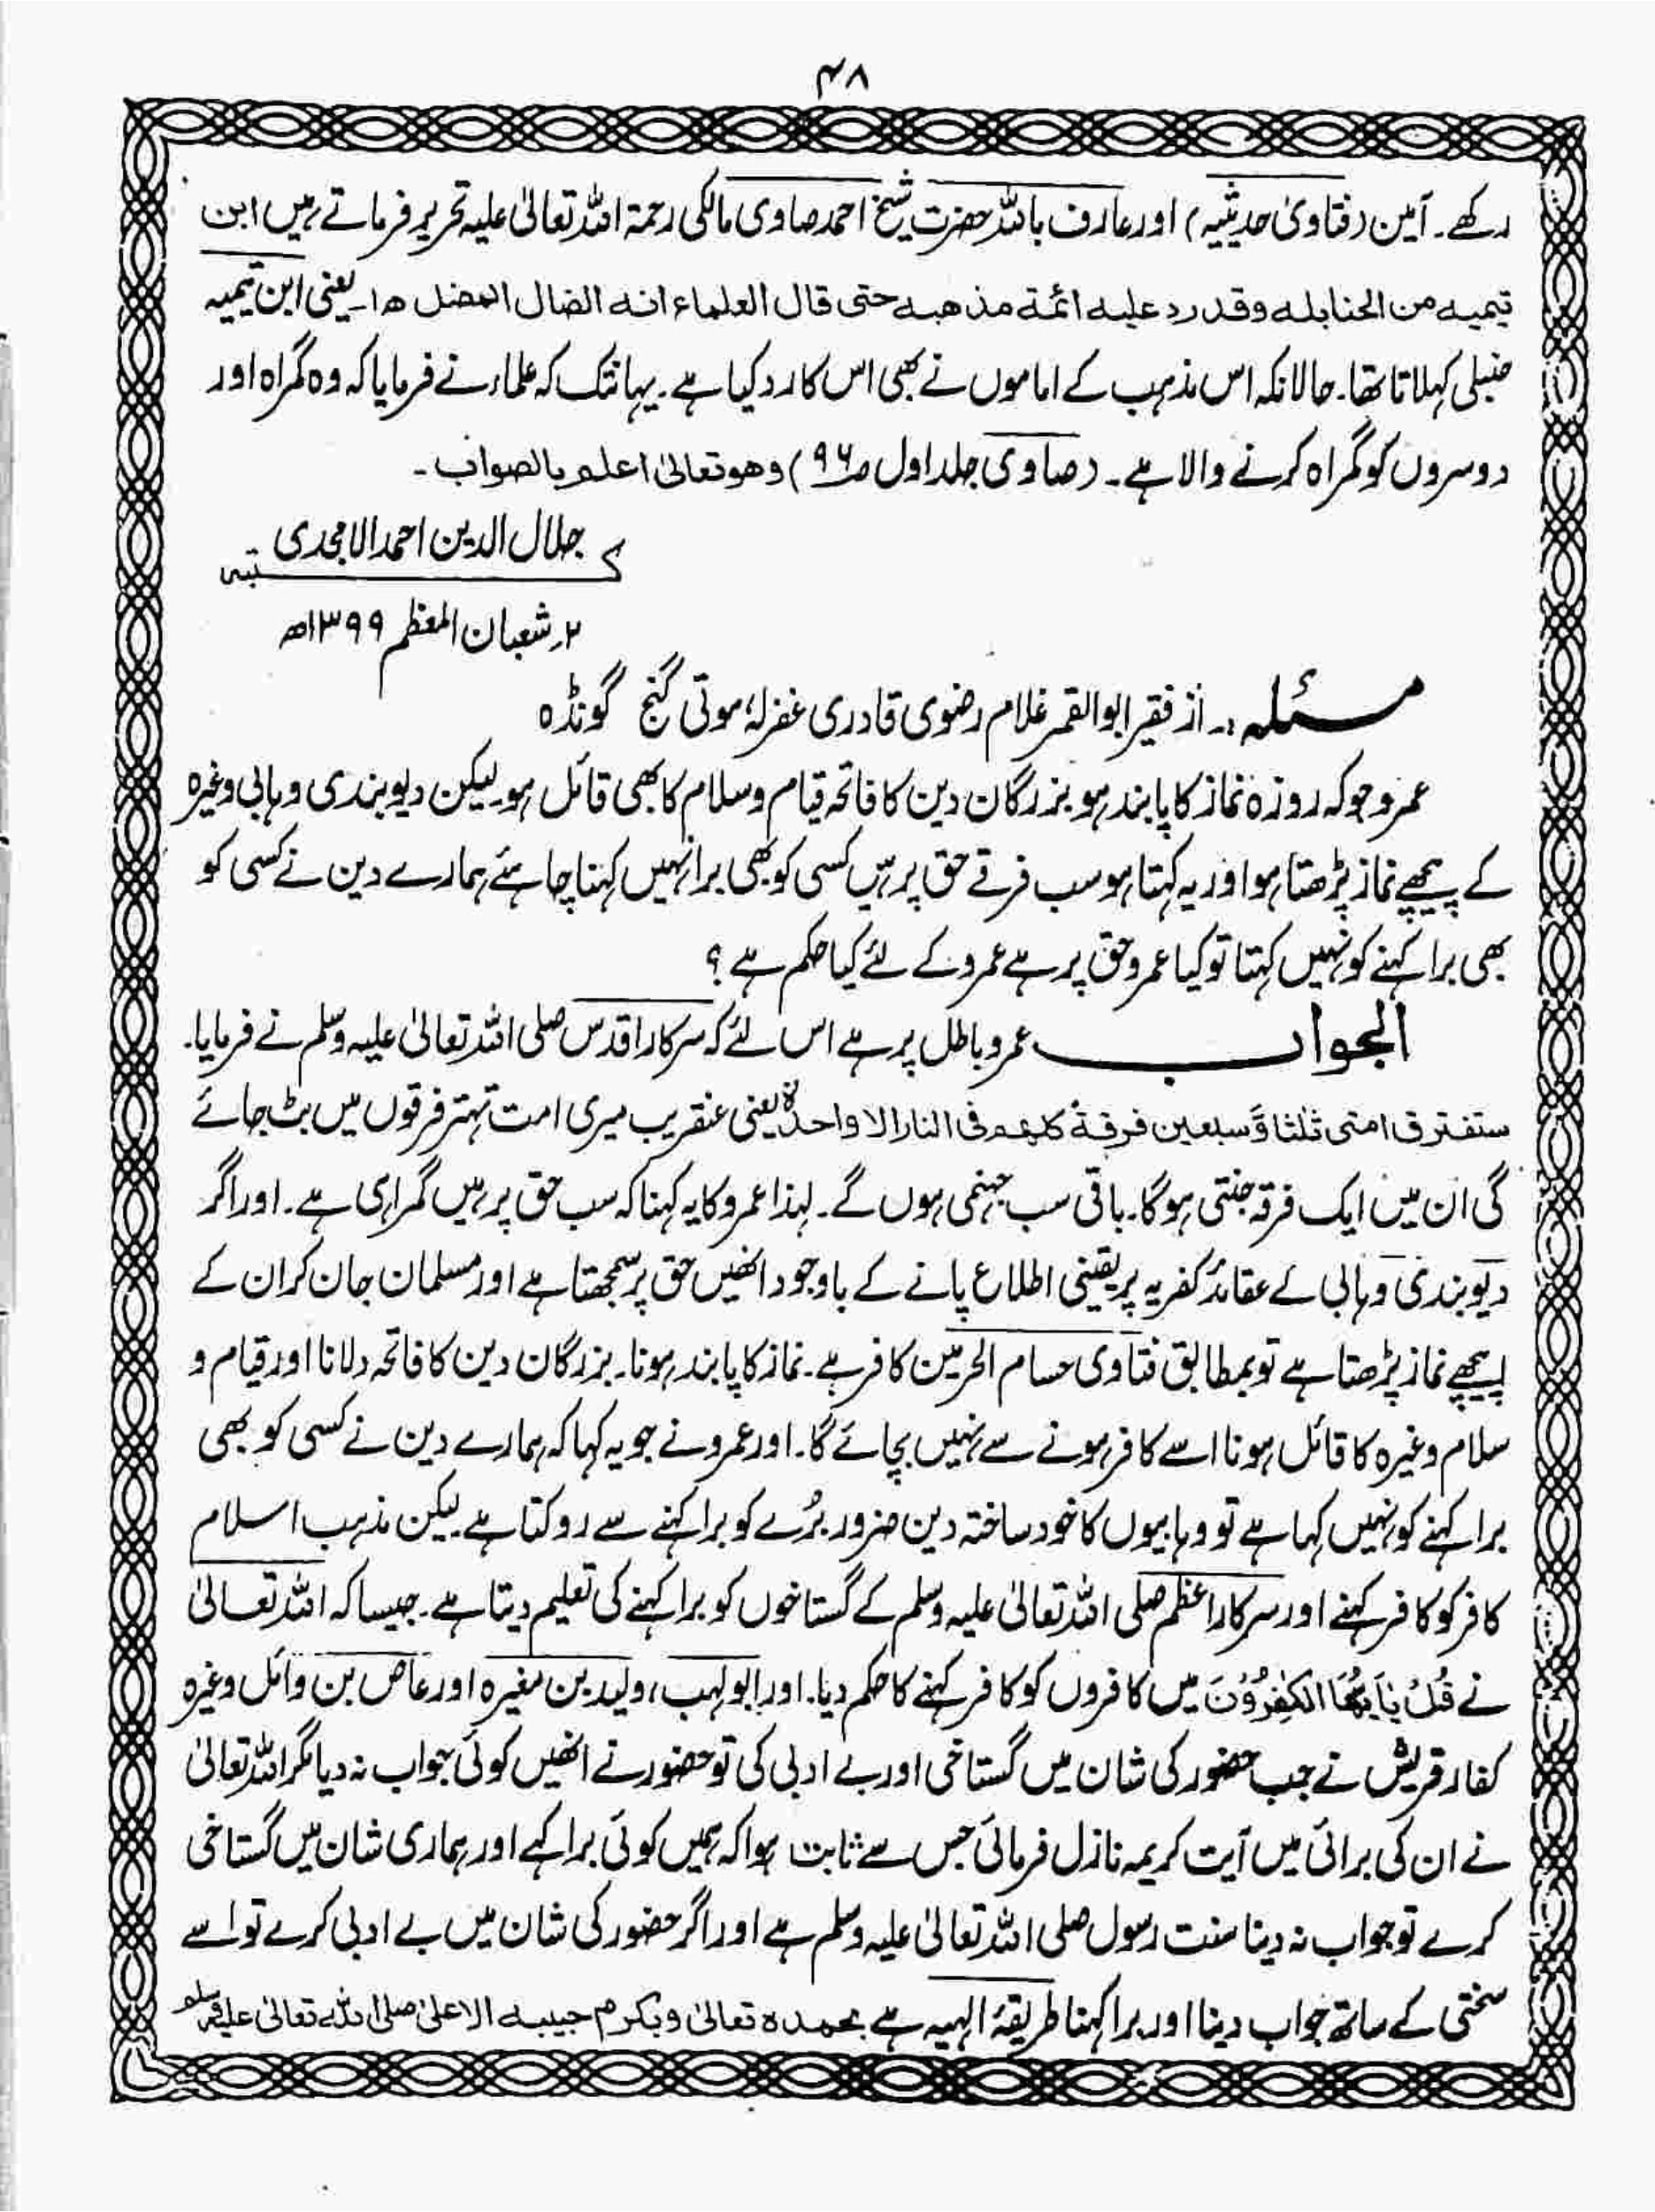 ۴۸
رکھے۔ آمین (فتاویٰ حدیثیہ) اور عارف باللہ حضرت شیخ احمد صاوی مالکی رحمۃ اللہ تعالیٰ علیہ تحریر فرماتے ہیں ابن
تیمیہ من الحنابلہ وقد رد علیہ ائمۃ مذھبہ حتی قال العلماء انہ الضال المضل ھ۱۔ یعنی ابن تیمیہ
حنبلی کہلاتا تھا۔ حالانکہ اس مذہب کے اماموں نے بھی اس کا رد کیا ہے۔ یہانتک کہ علماء نے فرمایا کہ وہ گمراہ اور
دوسروں کو گمراہ کرنے والا ہے۔ (صاوی جلد اول ص۹۶) وھو تعالیٰ اعلم بالصواب۔
جلال الدین احمد الامجدی
کتبہ
۲؍ شعبان المعظم ۱۳۹۹ھ
مسئلہ:۔ از فقیر ابوالقمر غلام رضوی قادری غفرلہٗ موتی گنج گونڈہ
عمرو جو کہ روزہ نماز کا پابند ہو بزرگان دین کا فاتحہ قیام وسلام کا بھی قائل ہو لیکن دیوبندی وہابی وغیرہ
کے پیچھے نماز پڑھتا ہو اور یہ کہتا ہو سب فرقے حق پر ہیں کسی کو بھی برا نہیں کہنا چاہئے ہمارے دین نے کسی کو
بھی برا کہنے کو نہیں کہتا تو کیا عمرو حق پر ہے عمرو کے لئے کیا حکم ہے ؟
الجواب عمرو باطل پر ہے اس لئے کہ سرکار اقدس صلی اللہ تعالیٰ علیہ وسلم نے فرمایا۔
ستفترق امتی ثلثا وَّسبعین فرقۃً کلھم فی النار الا واحدۃ یعنی عنقریب میری امت تہتر فرقوں میں بٹ جائے
گی ان میں ایک فرقہ جنتی ہوگا۔ باقی سب جہنمی ہوں گے۔ لہذا عمرو کا یہ کہنا کہ سب حق پر ہیں گمراہی ہے۔ اور اگر
دیوبندی وہابی کے عقائد کفریہ پر یقینی اطلاع پانے کے باوجود انھیں حق پر سمجھتا ہے اور مسلمان جان کر ان کے
پیچھے نماز پڑھتا ہے تو بمطابق فتاوی حسام الحرمین کافر ہے۔ نماز کا پابند ہونا۔ بزرگان دین کا فاتحہ دلانا اور قیام و
سلام وغیرہ کا قائل ہونا اسے کافر ہونے سے نہیں بچائے گا۔ اور عمرو نے جو یہ کہا کہ ہمارے دین نے کسی کو بھی
برا کہنے کو نہیں کہا ہے تو وہابیوں کا خود ساختہ دین ضرور بُرے کو برا کہنے سے روکتا ہے لیکن مذہب اسلام
کافر کو کافر کہنے اور سرکار اعظم صلی اللہ تعالیٰ علیہ وسلم کے گستاخوں کو برا کہنے کی تعلیم دیتا ہے۔ جیسا کہ اللہ تعالیٰ
نے قُلْ یٰاَیُّھَا الْکٰفِرُوْنَ میں کافروں کو کافر کہنے کا حکم دیا۔ اور ابولہب، ولید بن مغیرہ اور عاص بن وائل وغیرہ
کفار قریش نے جب حضور کی شان میں گستاخی اور بے ادبی کی تو حضور نے انھیں کوئی جواب نہ دیا مگر اللہ تعالیٰ
نے ان کی برائی میں آیت کریمہ نازل فرمائی جس سے ثابت ہوا کہ ہمیں کوئی برا کہے اور ہماری شان میں گستاخی
کرے تو جواب نہ دینا سنت رسول صلی اللہ تعالیٰ علیہ وسلم ہے اور اگر حضور کی شان میں بے ادبی کرے تو اسے
سختی کے ساتھ جواب دینا اور برا کہنا طریقۂ الہیہ ہے بحمدہ تعالیٰ وبکرم حبیبہ الاعلیٰ صلی اللہ تعالیٰ علیہ وسلم